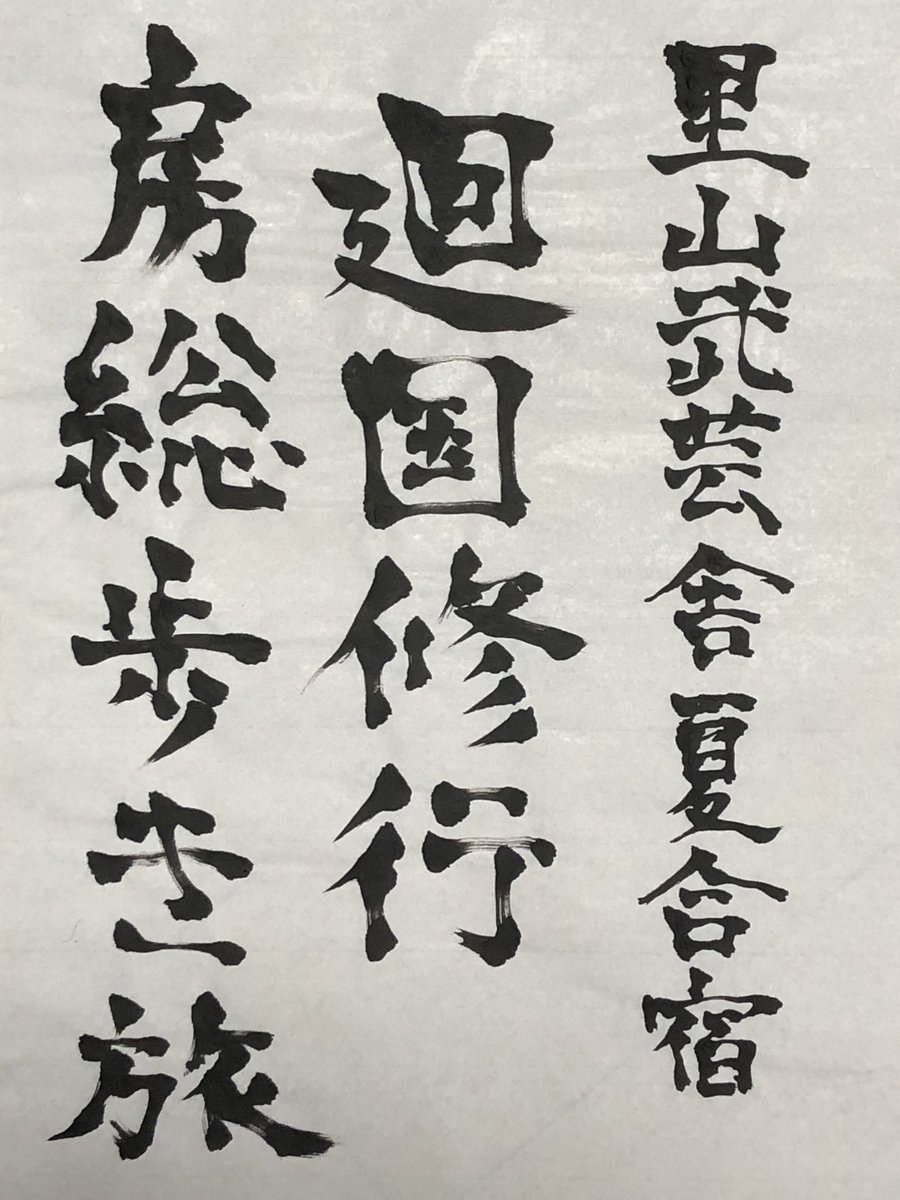 里山武芸舎夏合宿
廻国修行
房総歩き旅